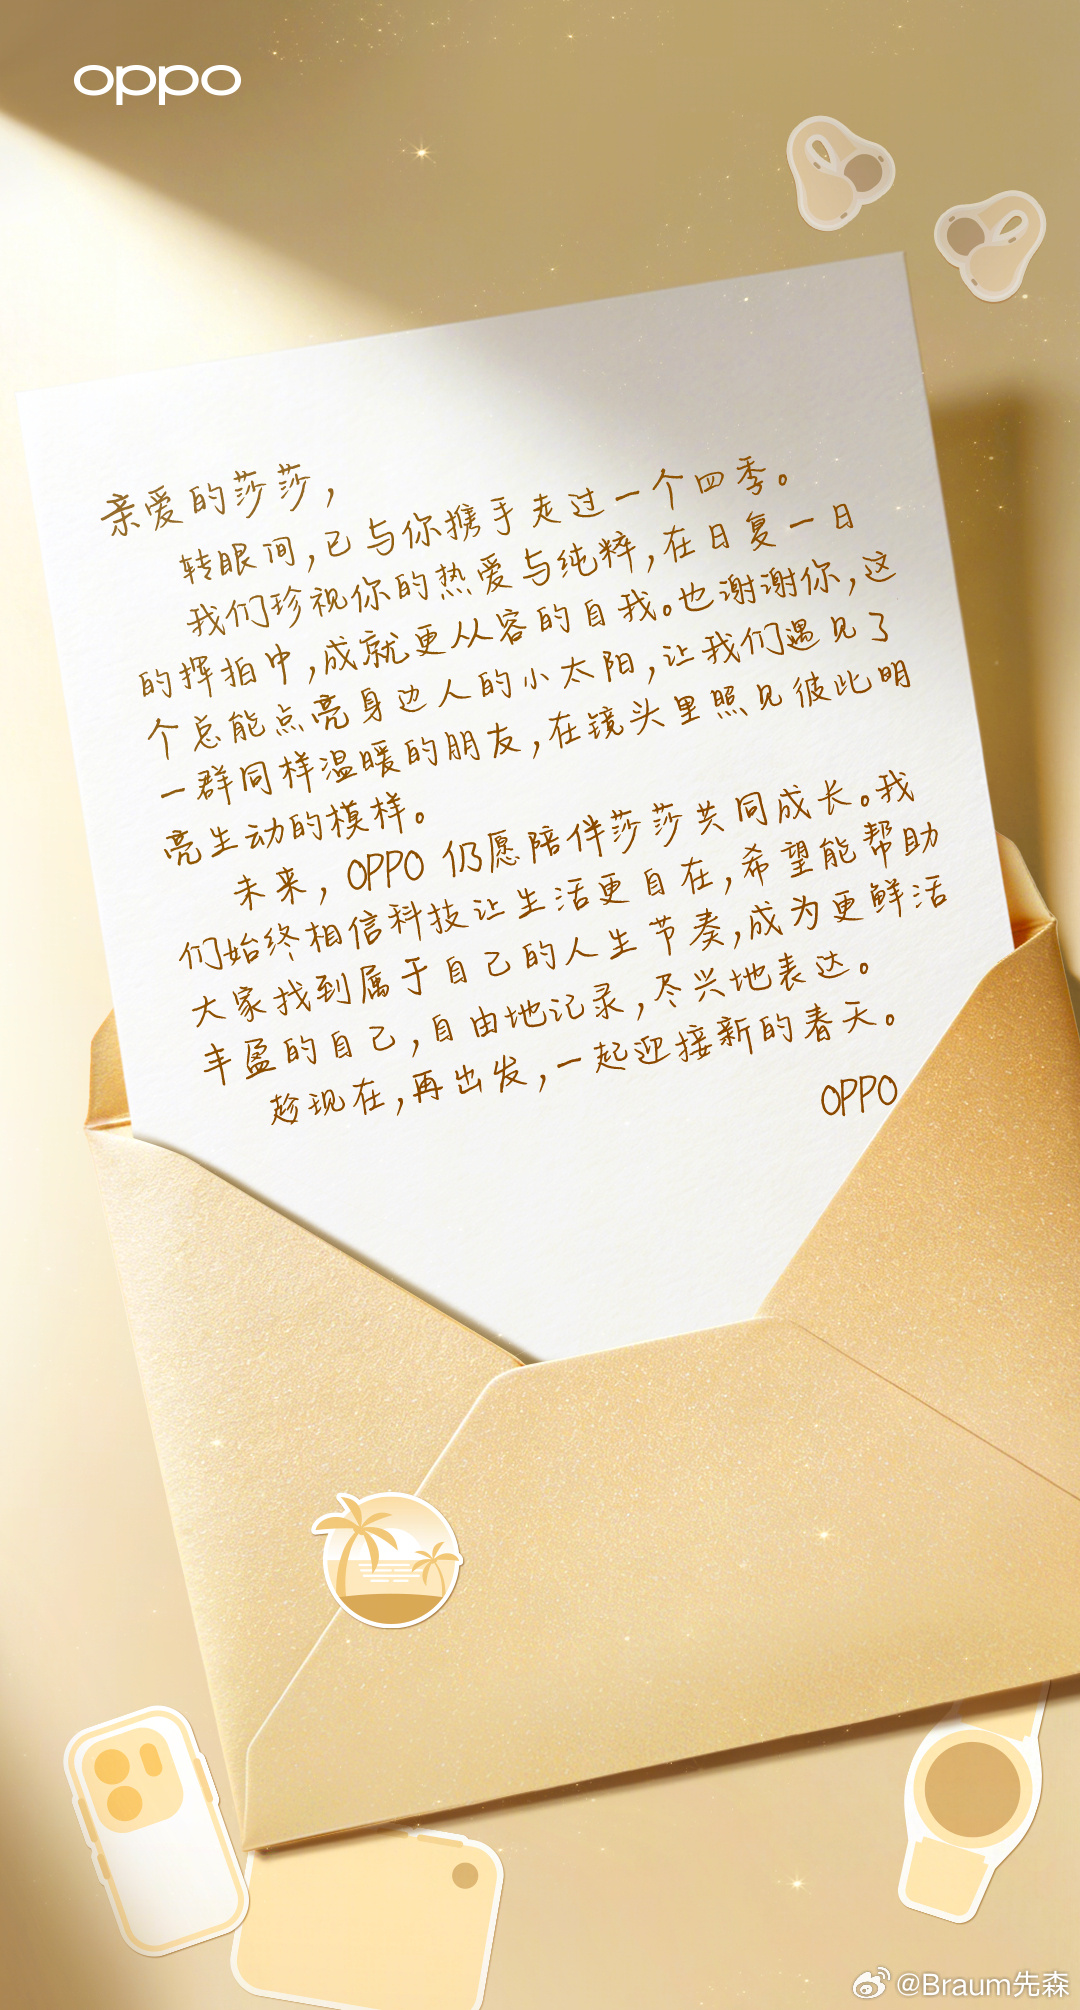 oppo
亲爱的莎莎，
转眼间，已与你携手走过一个四季。
我们珍视你的热爱与纯粹，在日复一日
的挥拍中，成就更从容的自我。也谢谢你，这
个总能点亮身边人的小太阳，让我们遇见了
一群同样温暖的朋友，在镜头里照见彼此明
亮生动的模样。
未来，OPPO 仍愿陪伴莎莎共同成长。我
们始终相信科技让生活更自在，希望能帮助
大家找到属于自己的人生节奏，成为更鲜活
丰盈的自己，自由地记录，尽兴地表达。
趁现在，再出发，一起迎接新的春天。
OPPO
@Braum先森